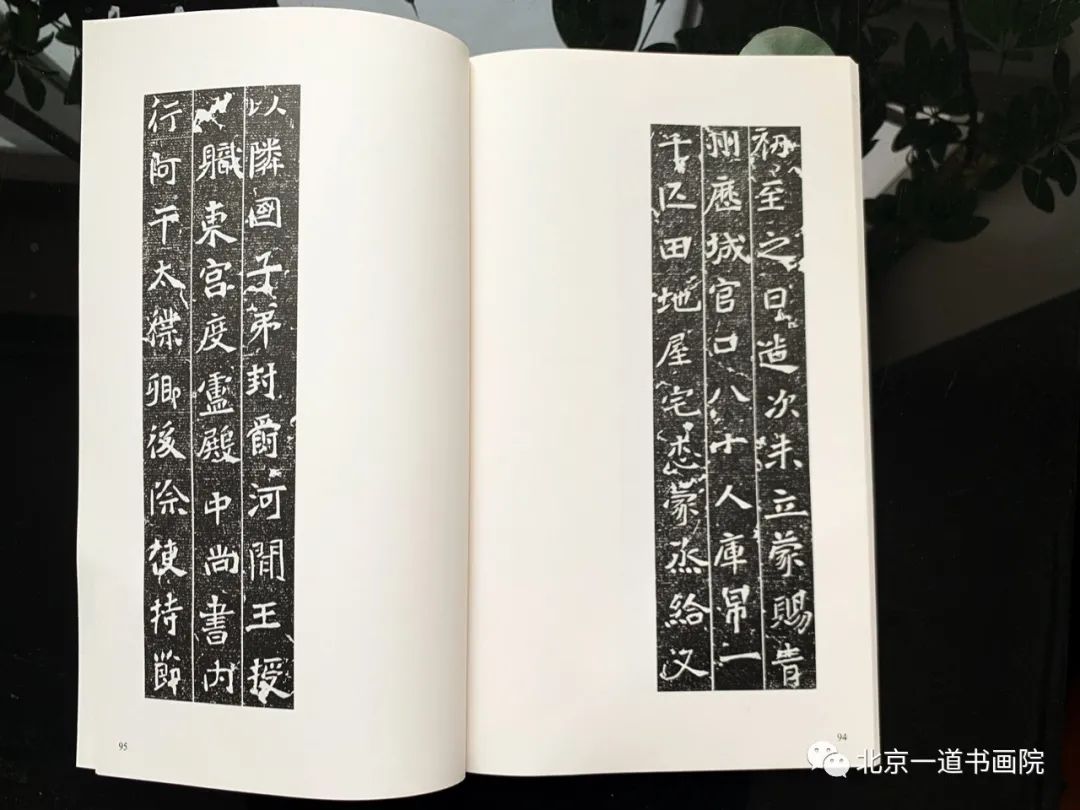 初至之日造次未立蒙賜青
州歷城官口八十人庫帛一
千匹田地屋宅悉蒙烝給又
94
以隣國子弟封爵河間王授
職東宮度盧殿中尚書內
行阿干太僕卿後除使持節
95
北京一道书画院